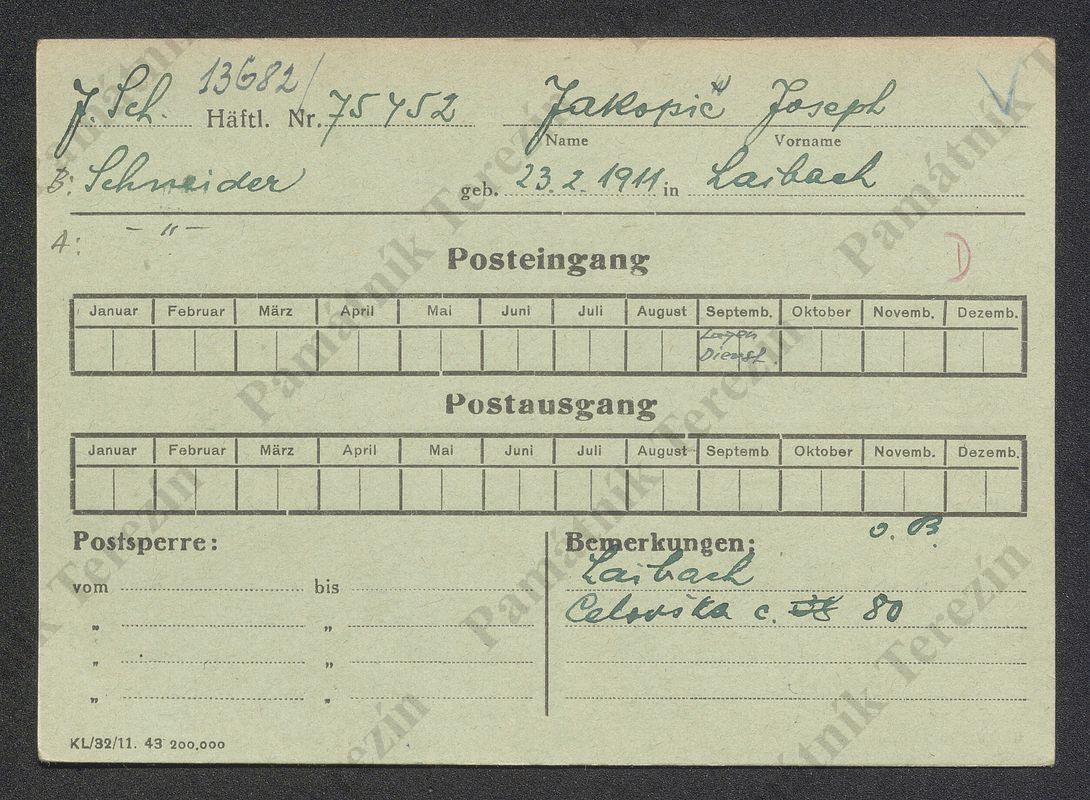 13682/
J. Sch. Häftl. Nr. 75452 Jakopič Joseph
Name Vorname
B: Schneider geb. 23.2.1911 in Laibach
A: – " –
D
Posteingang
Januar Februar März April Mai Juni Juli August Septemb. Oktober Novemb. Dezemb.
Lagen
Dienst.
Postausgang
Januar Februar März April Mai Juni Juli August Septemb Oktober Novemb. Dezemb.
Postsperre: Bemerkungen: o. B.
vom bis Laibach
" " Celovška c. 80
" "
" "
KL/32/11. 43 200,000
Památník Terezín